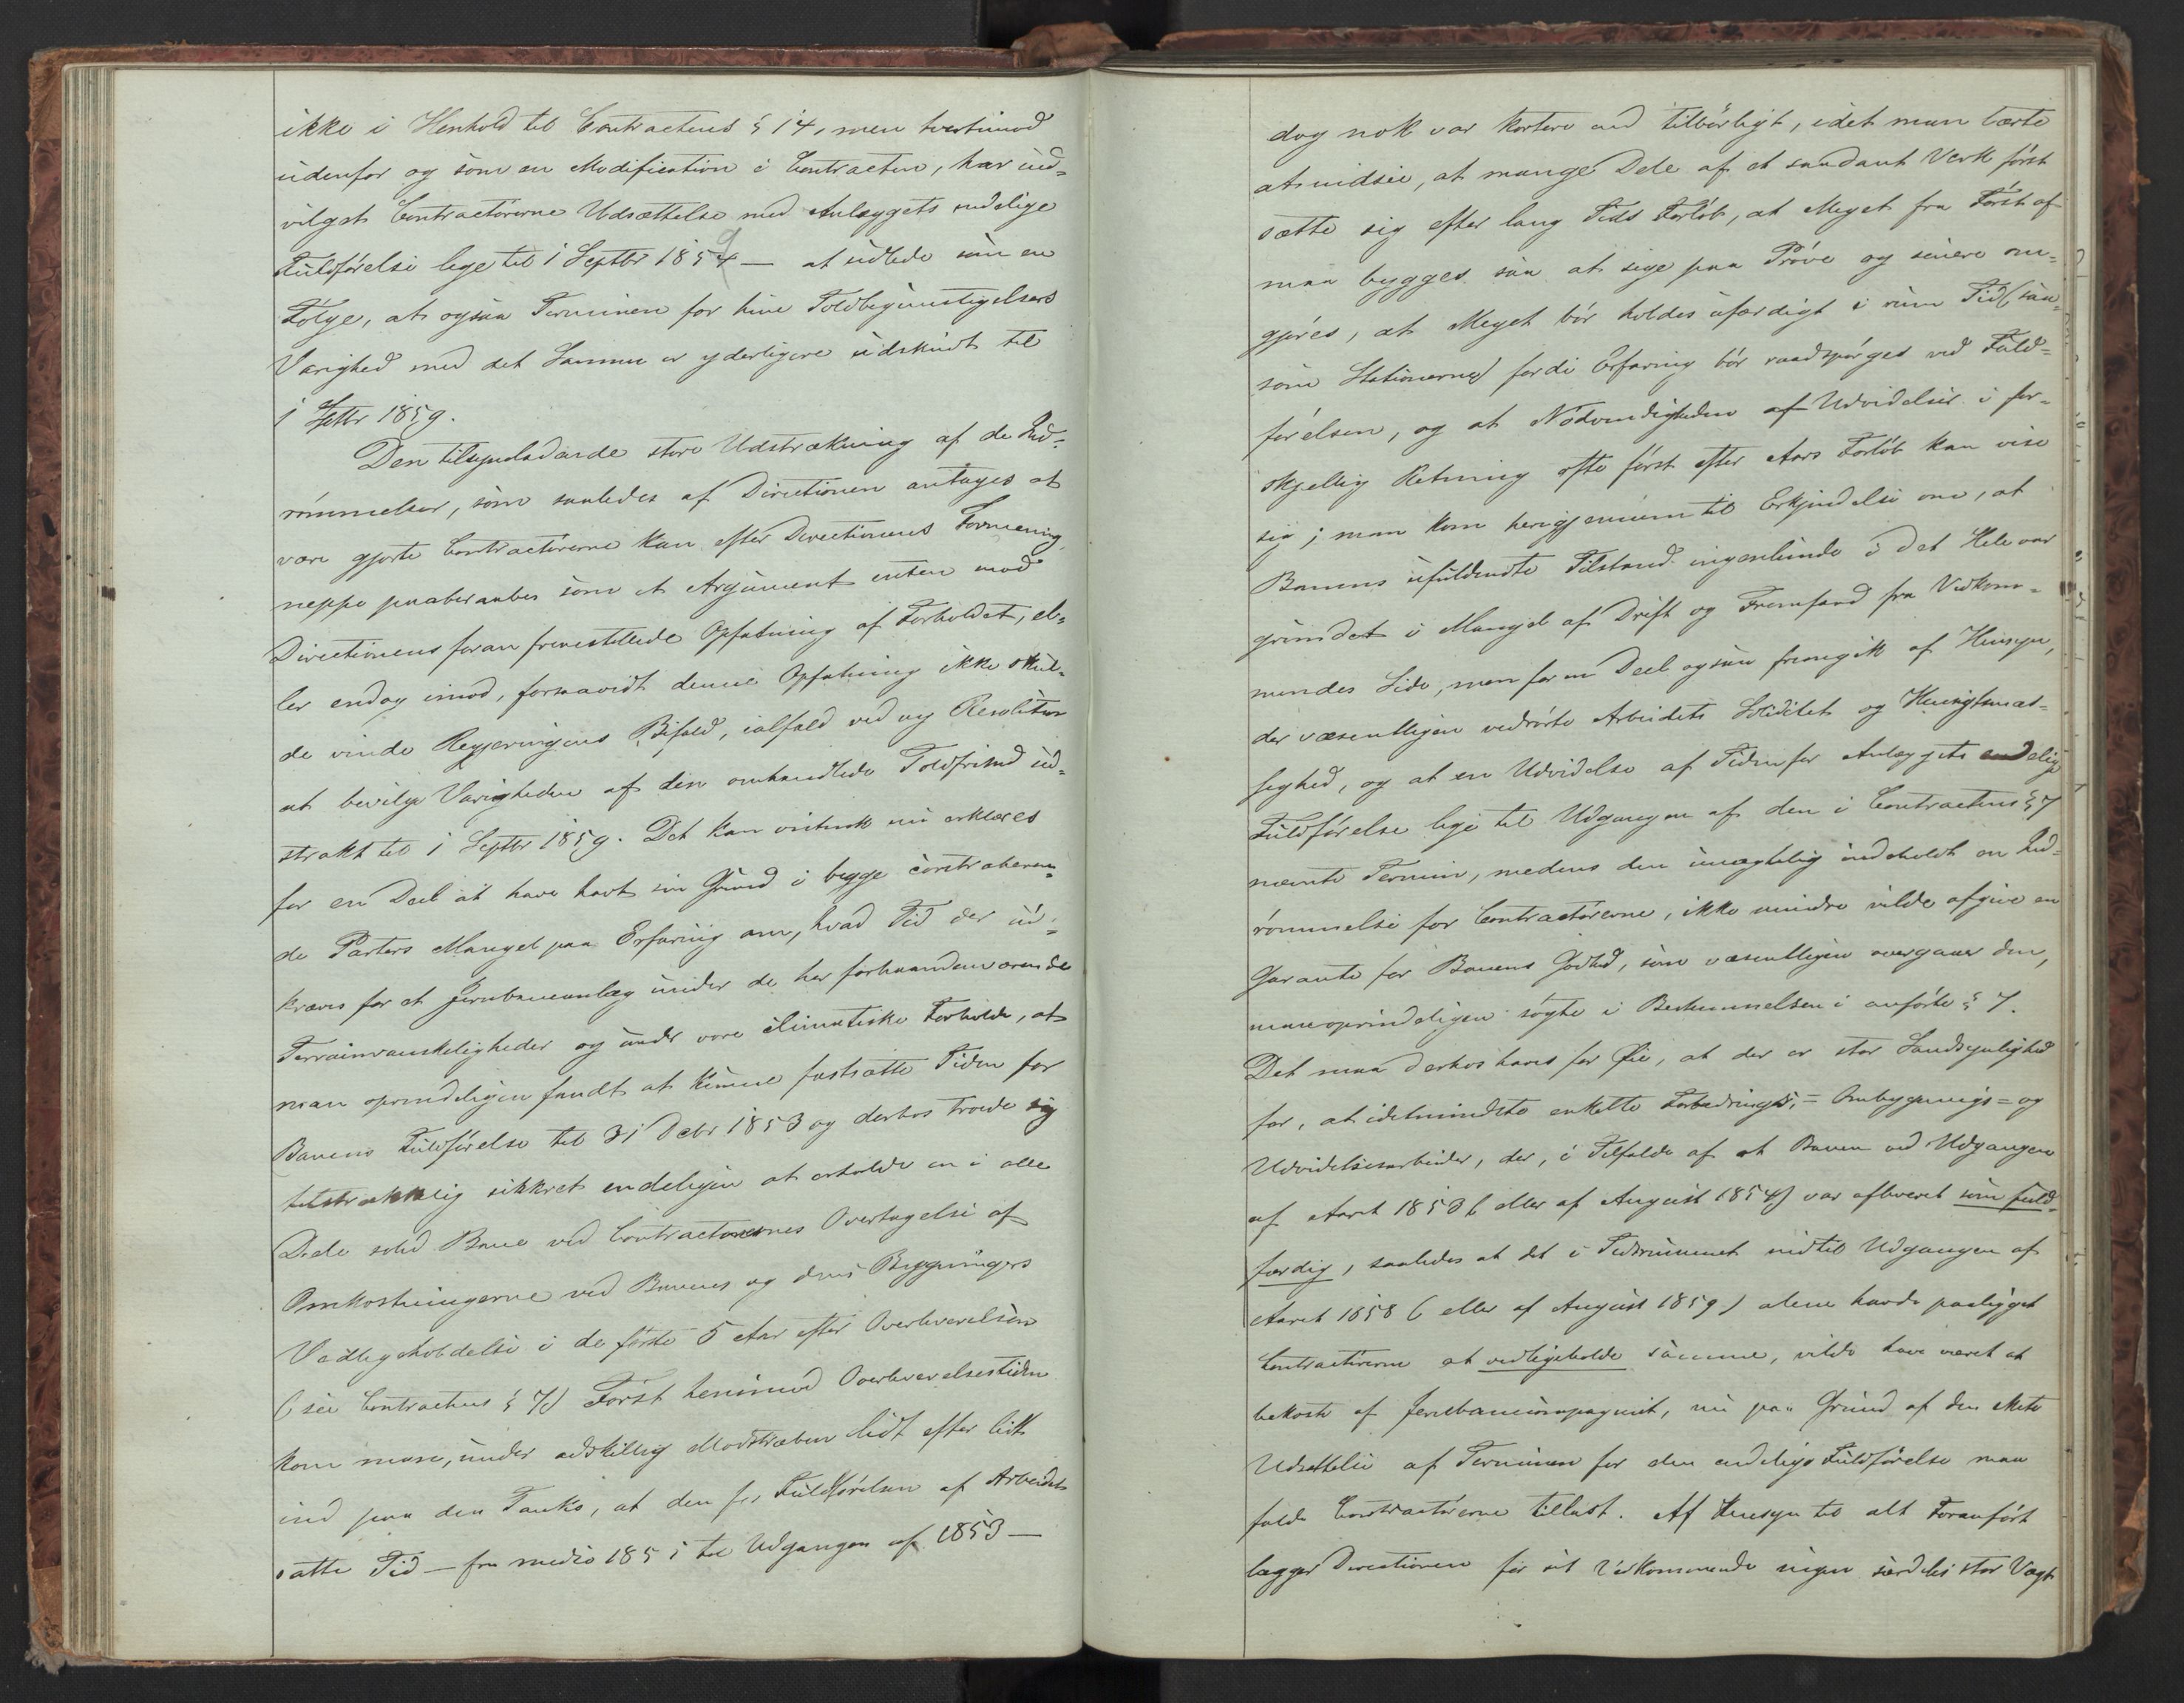 ikke i Henhold til Contractens § 14, men tvertimod
udenfor og som en Modification i Contracten, har ind-
vilget Contractörerne Udsættelse med Anlæggets endelige
Fuldförelse lige til 1 Septbr 1859 — at udlede som en
Fölge, at ogsaa Terminen for hine Toldbegunstigelsers
Varighed med det Samme er yderligere udskudt til
1 Septbr 1859.
Den tilsyneladende store Udstrækning af de Ind-
römmelser, som saaledes af Directionen antages at
være gjorte Contractörerne kan efter Directionens Formening
neppe paaberaabes som et Argument enten mod
Directionens foran fremstillede Opfatning af Forholdet, el-
ler endog imod, forsaavidt denne Opfatning ikke skul-
de vinde Regjeringens Bifald, ialfald ved ny Resolution
at bevilge Varigheden af den omhandlede Toldfrihed ud-
strakt til 1 Septbr 1859. Det kan vistnok nu erklæres
for en Deel at have havt sin Grund i begge contraheren-
de Parters Mangel paa Erfaring om, hvad Tid der ud-
kræves for et Jernbaneanlæg under de her forhaandenværende
Terrainvanskeligheder og under vore climatiske Forholde, at
man oprindeligen fandt at kunne fastsætte Tiden for
Banens Fuldförelse til 31 Decbr 1853 og derhos troede sig
tilstrækkelig sikkret endeligen at erholde en i alle
Dele solid Bane ved Contractörernes Overtagelse af
Omkostningerne ved Banens og dens Bygningers
Vedligeholdelse i de förste 5 Aar efter Overleverelsen
(see Contractens § 7) Först henimod Overleverelsestiden
kom man, under adskillig Modstræben lidt efter lidt
ind paa den Tanke, at den for Fuldförelsen af Arbeidet
satte Tid — fra medio 1851 til Udgangen af 1853 —
dog nok var kortere end tilbörligt, idet man lærte
at indsee, at mange Dele af et saadant Værk först
sætte sig efter lang Tids Forlöb, at Meget fra Först af
maa bygges saa at sige paa Pröve og senere om-
gjöres, at Meget bör holdes ufærdigt i rum Tid (saa-
som Stationerne) fordi Erfaring bör raadspörges ved Fuld-
förelsen, og at Nödvendigheden af Udvidelser i for-
skjellig Retning ofte först efter Aars Forlöb kan vise
sig; man kom herigjennem til Erkjendelse om, at
Banens ufuldendte Tilstand ingenlunde i det Hele var
grundet i Mangel af Drift og Fremfærd fra Vedkom-
mendes Side, men for en Deel ogsaa fremgik af Hensyn,
der væsentligen vedrörte Arbeidets Soliditet og Hensigtsmæs-
sighed, og at en Udvidelse af Tiden for Anlæggets endelige
Fuldförelse lige til Udgangen af den i Contractens § 7
nævnte Termin, medens den unægtelig indeholdt en Ind-
römmelse for Contractörerne, ikke mindre vilde afgive en
Garantie for Banens Godhed, som væsentligen overgaaer den,
man oprindeligen sögte i Bestemmelsen i anförte § 7.
Det maa derhos haves for Öie, at der er stor Sandsynlighed
for, at idetmindste enkelte Forbedrings- Ombygnings- og
Udvidelsesarbeider, der, i Tilfælde af at Banen ved Udgangen
af Aaret 1853 (eller af August 1854) var afleveret som fuld-
færdig, saaledes at det i Tidsrummet indtil Udgangen af
Aaret 1858 (eller af August 1859) alene havde paaligget
Contractörerne at vedligeholde samme, vilde have været at
bekoste af Jernbanecompagniet, nu paa Grund af den skete
Udsættelse af Terminen for den endelige Fuldförelse maa
falde Contractörerne tillast. Af Hensyn til alt Foranfört
lægger Directionen for sit Vedkommende ingen særdeles stor Vægt